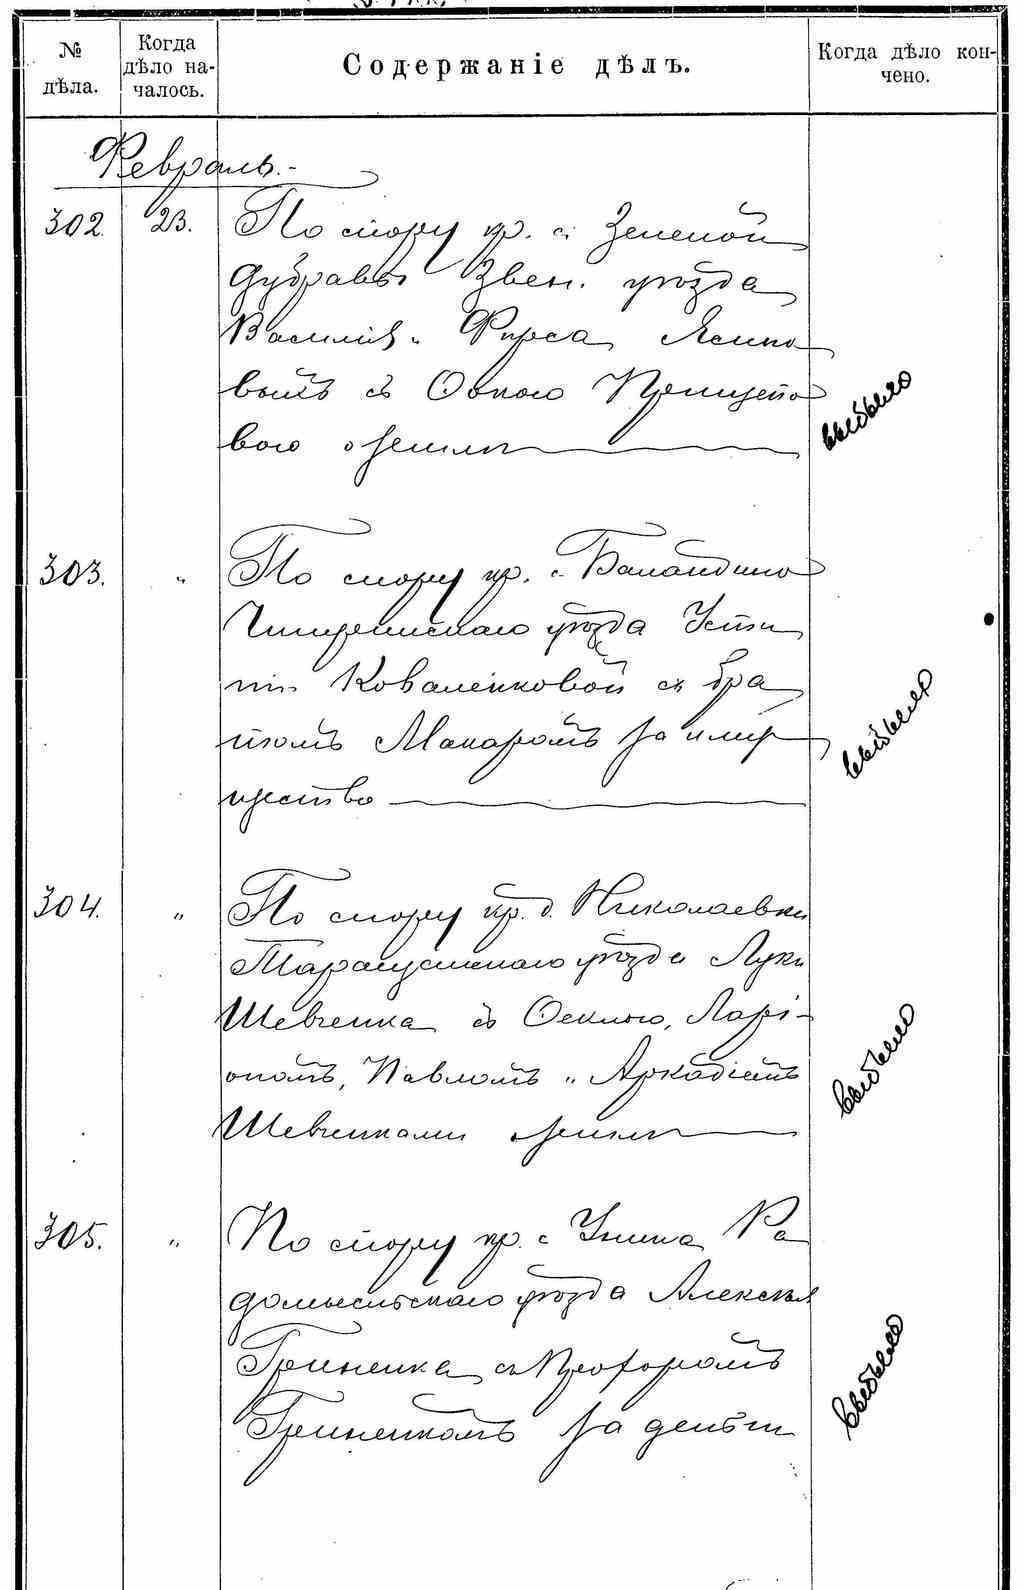 № дѣла.
Когда дѣло началось.
Содержаніе дѣлъ.
Когда дѣло кончено.
Февраль.
302. 23. По спору кр. с. Зеленой
Дубравы Звен. уѣзда
Василія и Фирса Ясино
выхъ съ
вою о землѣ
выбыло
303. " По спору кр. с. Баландино
Чигиринскаго уѣзда Усти
ніи Коваленковой съ бра
томъ Макаромъ за иму
щество
выбыло
304. " По спору кр. д. Николаевки
Таращанскаго уѣзда Луки
Шевченка съ Феклою, Ларі-
ономъ, Павломъ и Аркадіемъ
Шевченками о землѣ
выбыло
305. " По спору кр. с. Унина Ра
домысльскаго уѣзда Алексѣя
Гриненка съ Прохоромъ
Гриненкомъ за деньги
выбыло